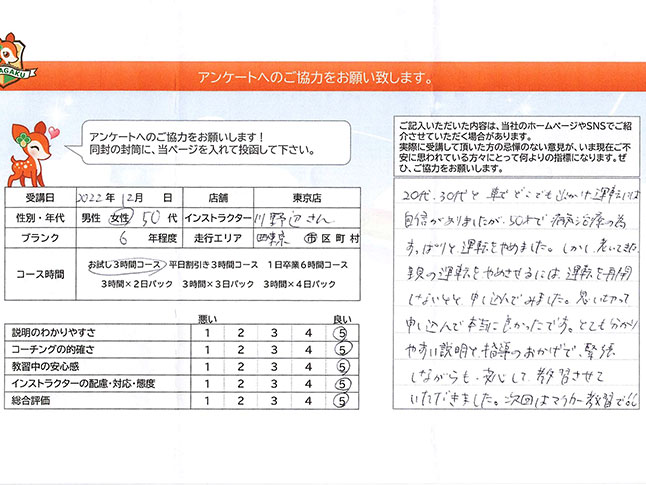 アンケートへのご協力をお願い致します。
アンケートへのご協力をお願いします！
同封の封筒に、当ページを入れて投函して下さい。
受講日 2022年 12月 日 店舗 東京店
性別・年代 男性 女性 50代 インストラクター 川野辺さん
ブランク 6 年程度 走行エリア 西東京 市区町村
コース時間 お試し3時間コース 平日割引き3時間コース 1日卒業6時間コース
3時間×2日パック 3時間×3日パック 3時間×4日パック
悪い 良い
説明のわかりやすさ 1 2 3 4 5
コーチングの的確さ 1 2 3 4 5
教習中の安心感 1 2 3 4 5
インストラクターの配慮・対応・態度 1 2 3 4 5
総合評価 1 2 3 4 5
ご記入いただいた内容は、当社のホームページやSNSでご紹
介させていただく場合があります。
実際に受講して頂いた方の忌憚のない意見が、いま現在ご不
安に思われている方々にとって何よりの指標になります。ぜ
ひ、ご協力をお願いします。
20代、30代と車でどこでも出かけ運転には
自信がありましたが、50才で病気治療の為
すっぱりと運転をやめました。しかし、老いてきた
親の運転をやめさせるには、運転を再開
しないとと申し込んでみました。思いきって
申し込んで本当に良かったです。とても分かり
やすい説明と指導のおかげで、緊張
しながらも、安心して教習させて
いただきました。次回はマイカー教習で